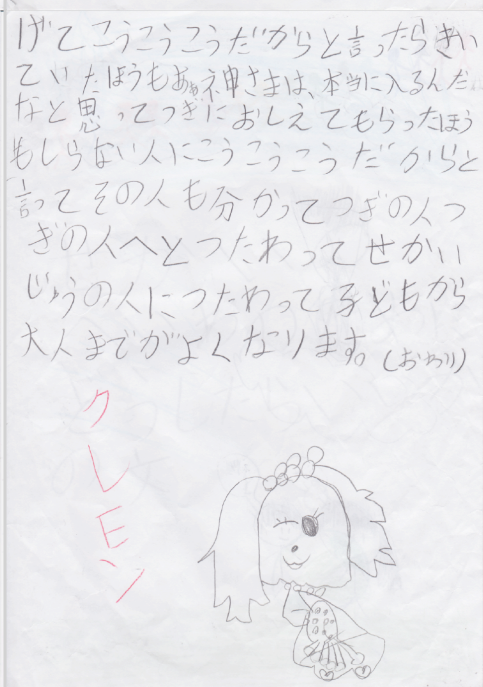 げてこうこうこうだからと言ったらきい
ていたほうもあぁ神さまは、本当に入るんだ
なと思ってつぎにおしえてもらったほう
もしらない人にこうこうこうだからと
言ってその人も分かってつぎの人つ
ぎの人へとつたわってせかい
じゅうの人につたわって子どもから
大人までがよくなります。(おわり)
クレモン